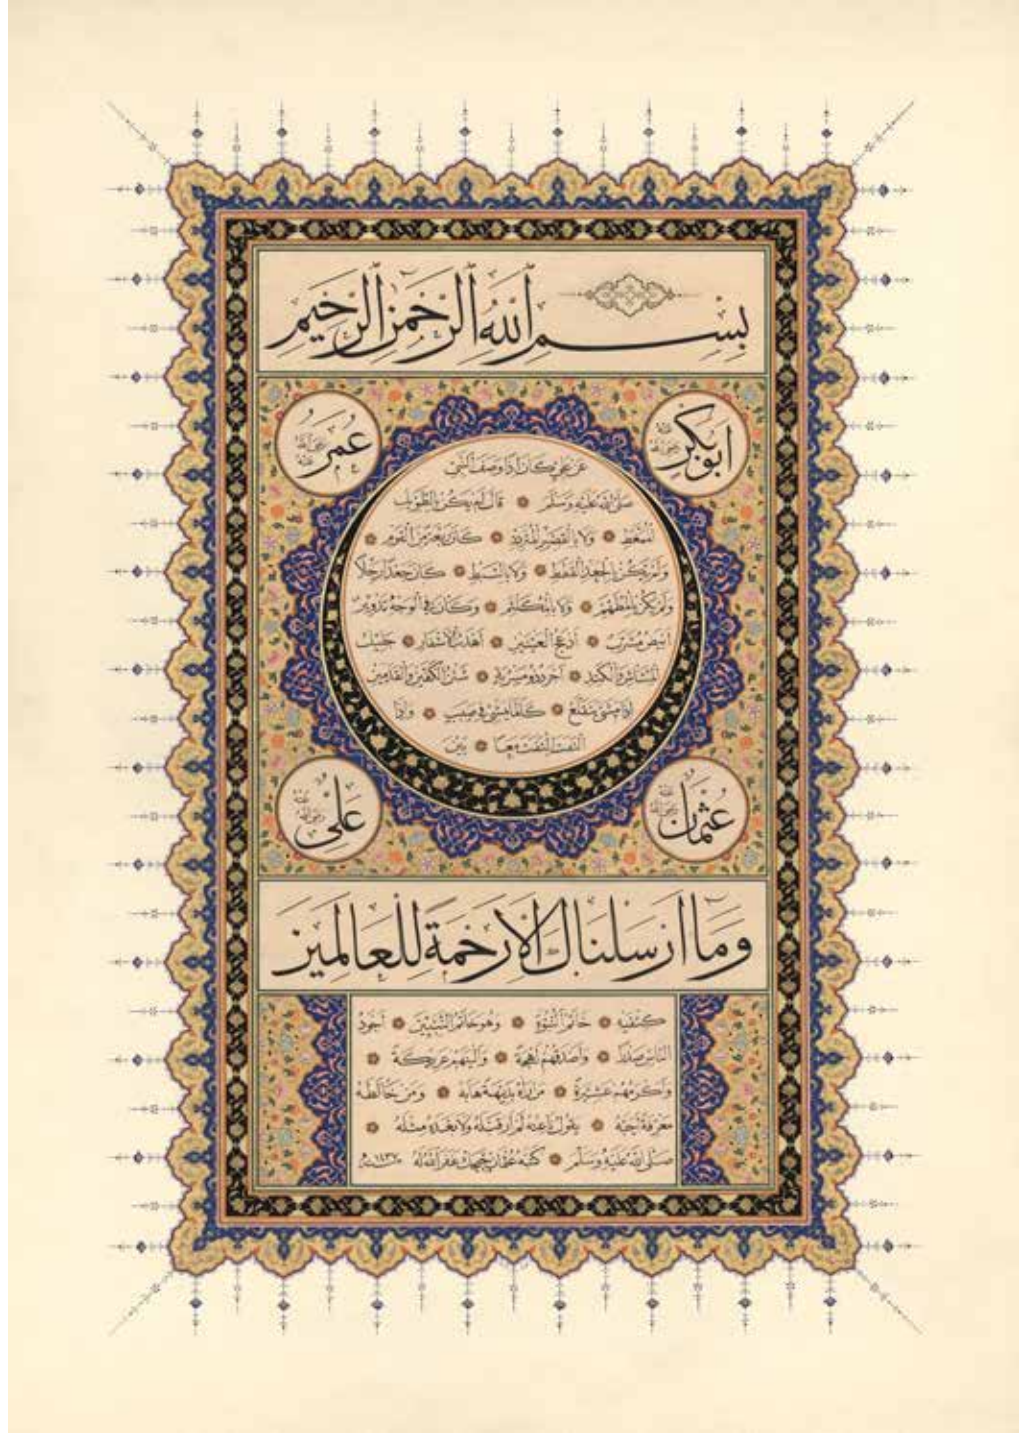 بِسْمِ اللّٰهِ الرَّحْمٰنِ الرَّحِيمِ
ابوبكر رضي الله عنه
عُمَر رضي الله عنه
عن علي كان اذا وصف النبي
صلى الله عليه وسلم ۞ قال لم يكن بالطويل
الممغط ۞ ولا بالقصير المتردد ۞ وكان ربعة من القوم ۞
ولم يكن بالجعد القطط ۞ ولا بالسبط ۞ كان جعدا رجلا
ولم يكن بالمطهم ۞ ولا بالمكلثم ۞ وكان في الوجه تدوير
ابيض مشرب ۞ ادعج العينين ۞ اهدب الاشفار ۞ جليل
المشاش والكتد ۞ اجرد ذو مسربة ۞ شثن الكفين والقدمين
اذا مشى يتقلع ۞ كانما يمشي في صبب ۞ واذا
التفت التفت معا ۞ بين
عُثمان رضي الله عنه
علي رضي الله عنه
وما ارسلناك الا رحمة للعالمين
كتفيه ۞ خاتم النبوة ۞ وهو خاتم النبيين ۞ اجود
الناس صدرا ۞ واصدقهم لهجة ۞ والينهم عريكة ۞
واكرمهم عشيرة ۞ من راه بديهة هابه ۞ ومن خالطه
معرفة احبه ۞ يقول ناعته لم ار قبله ولا بعده مثله ۞
صلى الله عليه وسلم ۞ كتبه غفر الله له